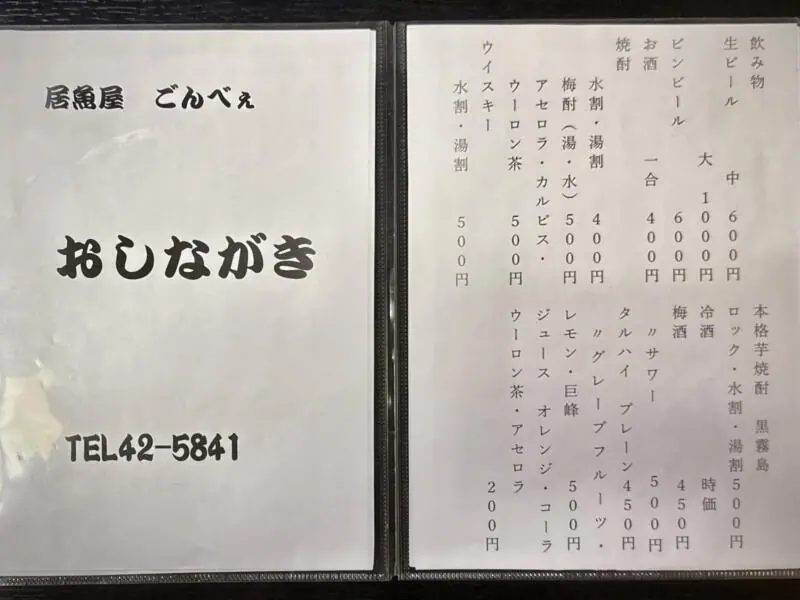 居魚屋 ごんべぇ
おしながき
TEL42-5841
飲み物
生ビール 中 600円
大 1000円
ビンビール 600円
お酒 一合 400円
焼酎
水割・湯割 400円
梅酎(湯・水) 500円
アセロラ・カルピス・
ウーロン茶 500円
ウイスキー
水割・湯割 500円
本格芋焼酎 黒霧島
ロック・水割・湯割 500円
冷酒 時価
梅酒 450円
〃サワー 500円
タルハイ プレーン 450円
〃グレープフルーツ・
レモン・巨峰 500円
ジュース オレンジ・コーラ
ウーロン茶・アセロラ 200円